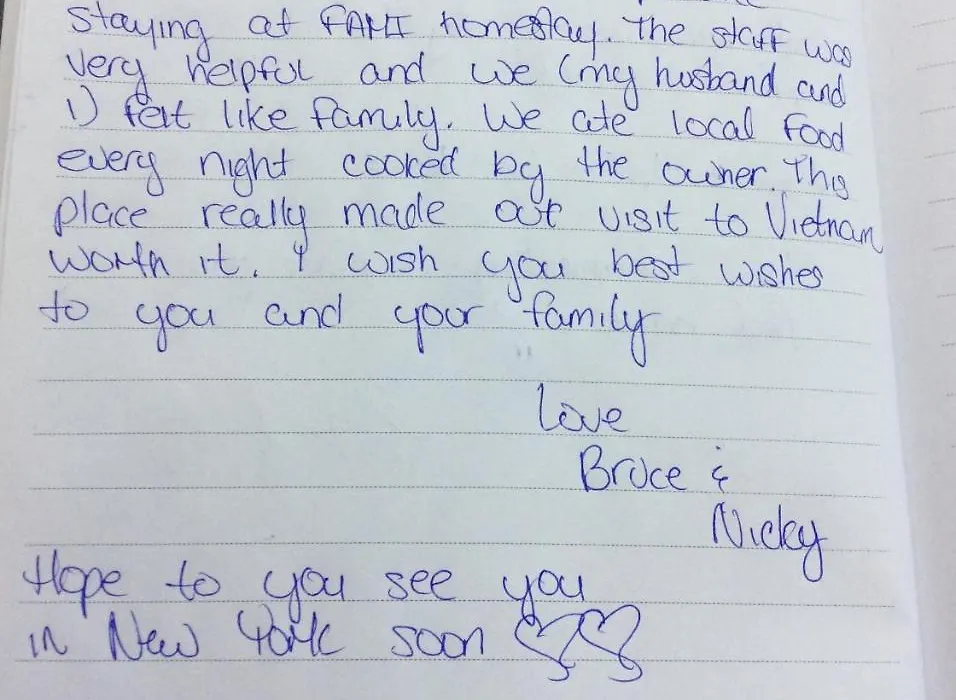 staying at FAMI homestay. The staff was
very helpful and we (my husband and
I) felt like family. We ate local food
every night cooked by the owner. This
place really made out visit to Vietnam
worth it. I wish you best wishes
to you and your family
Love
Bruce &
Nicky
Hope to you see you
in New York soon